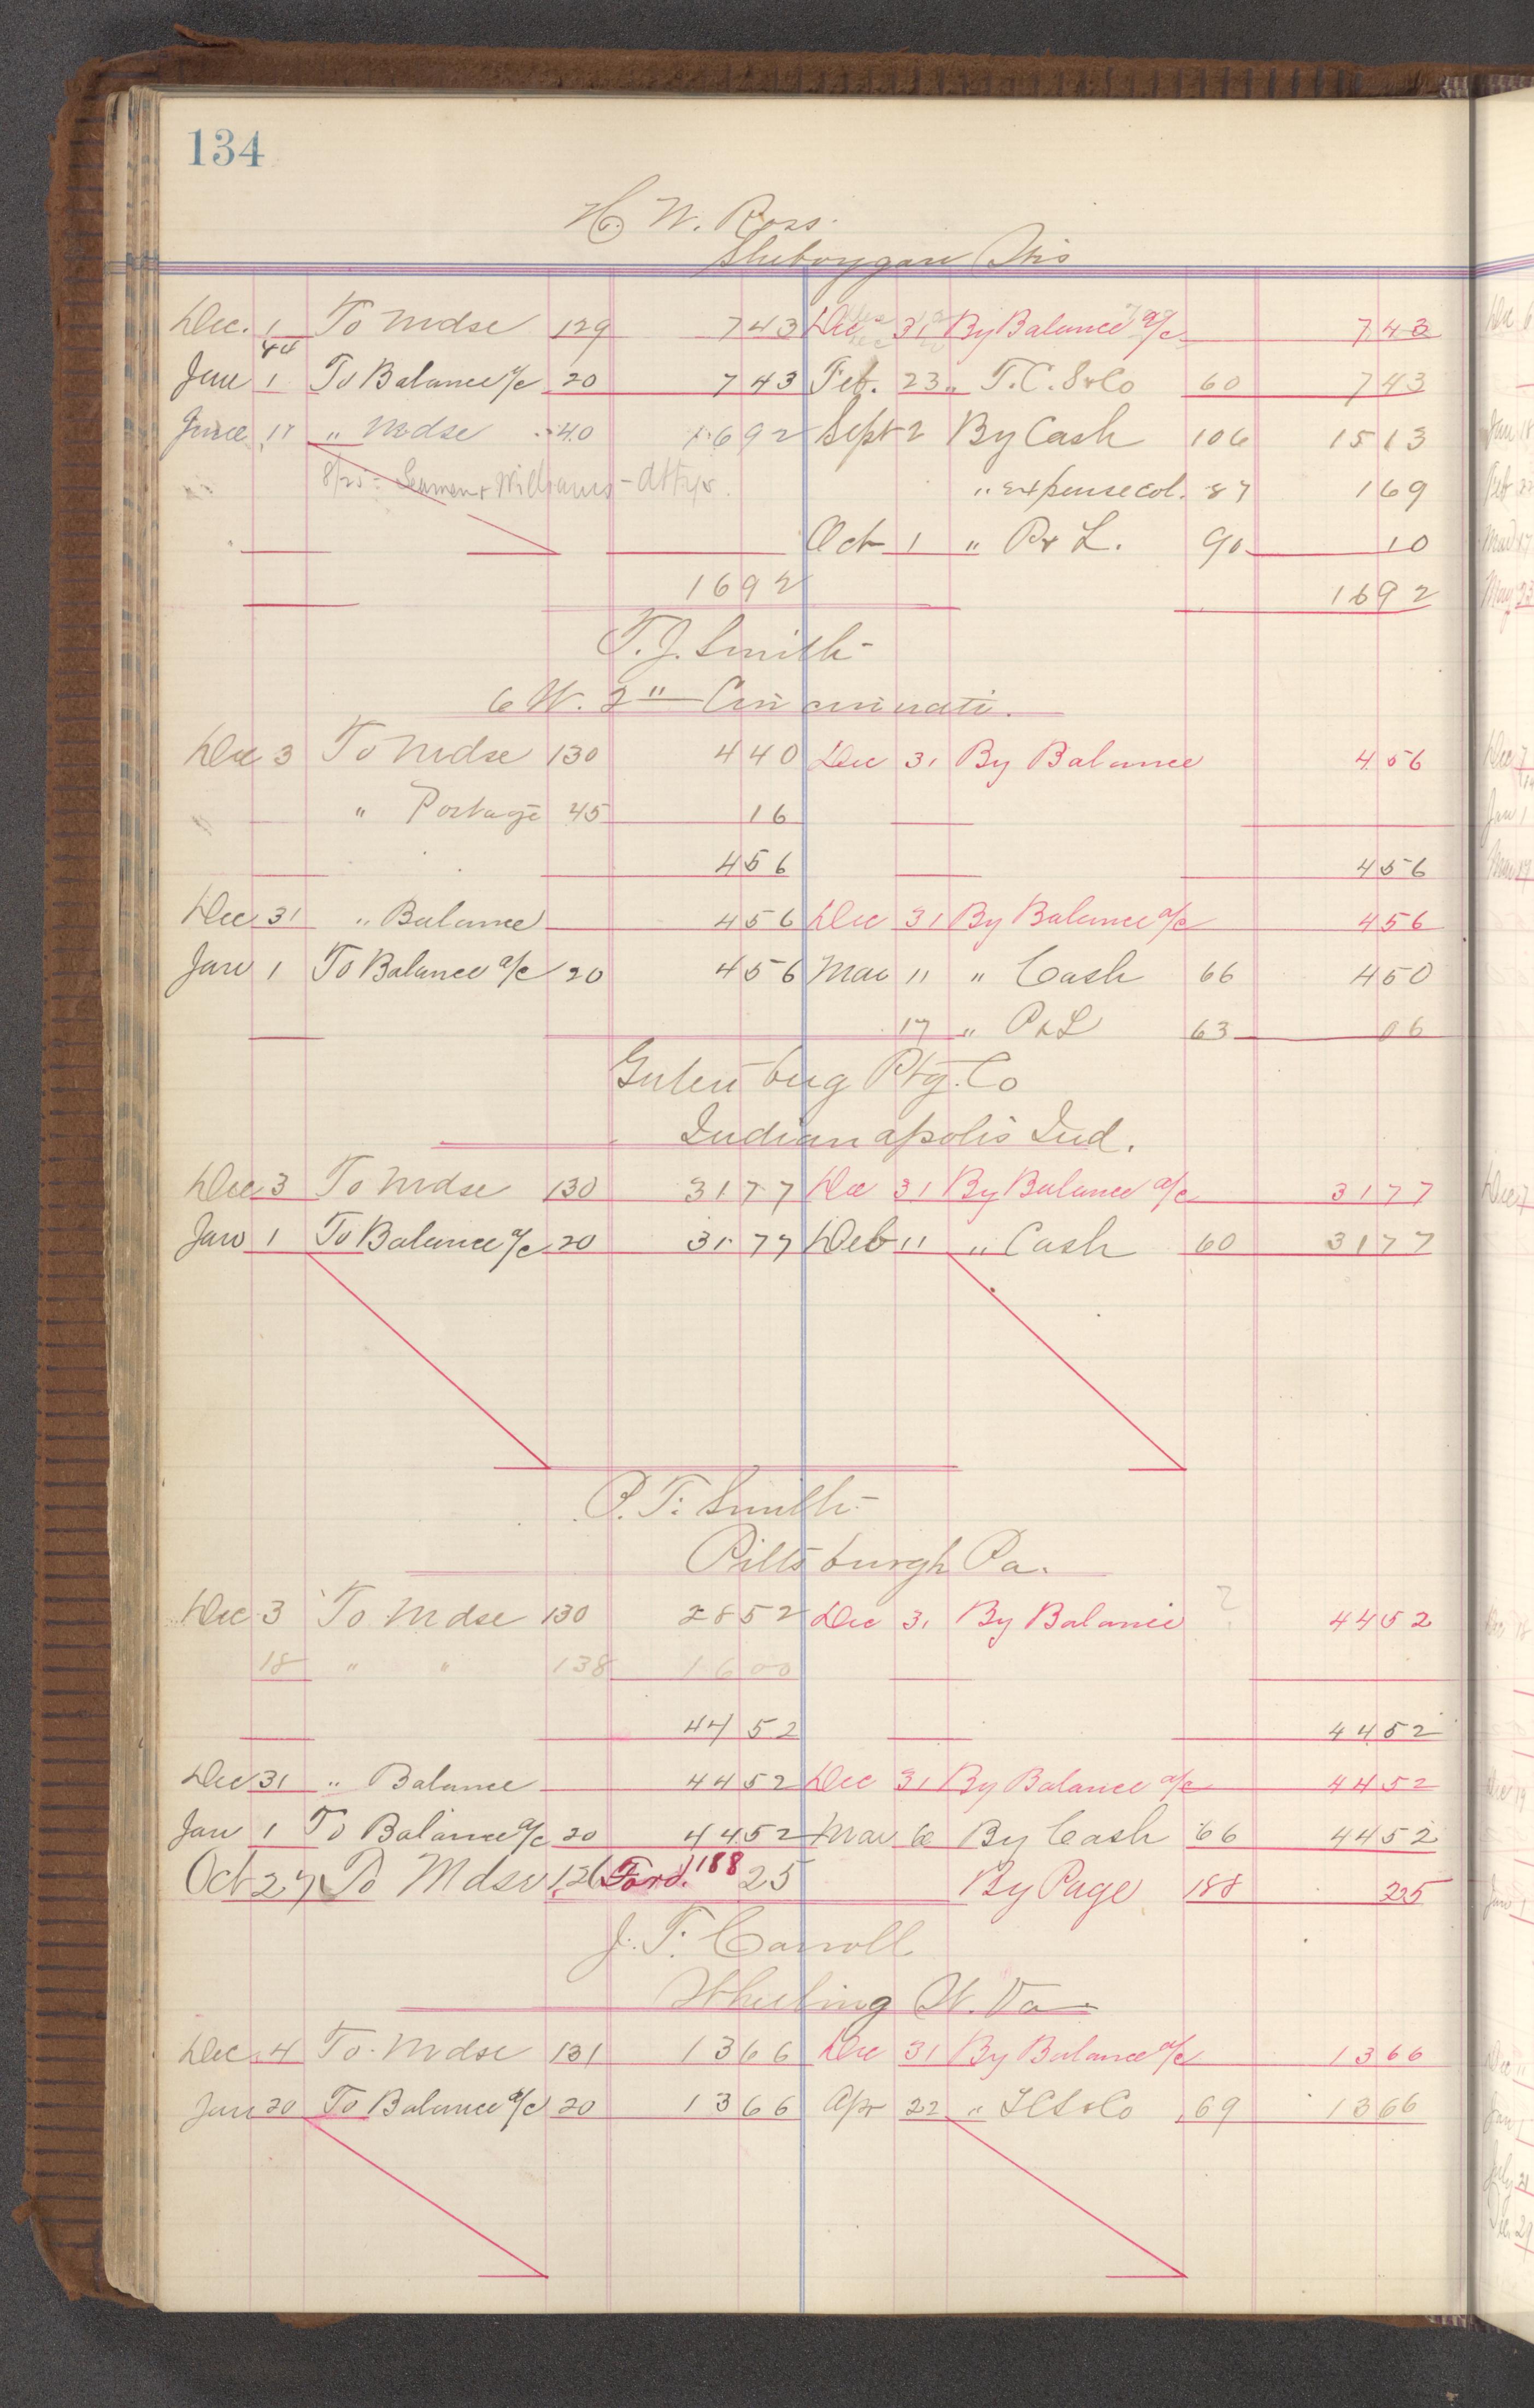 134
H. W. Ross.
Sheboygan Wis
Dec. 1 To Mdse 129 7 43 Dec 31 By Balance a/c 7 43
44
Jan 1 To Balance a/c 20 7 43 Feb. 23 " T. C. S & Co 60 7 43
June 17 " Mdse 40 16 92 Sept 2 By Cash 106 15 13
8/25 - Seaman & Williams - Attys. " expense col. 87 1 69
Oct 1 " P & L. 90 10
16 92 16 92
T. J. Smith
6 W. 2" Cincinnati.
Dec 3 To Mdse 130 4 40 Dec 31 By Balance 4 56
" Postage 45 16
4 56 4 56
Dec 31 " Balance 4 56 Dec 31 By Balance a/c 4 56
Jan 1 To Balance a/c 20 4 56 Mar 11 " Cash 66 4 50
17 " P & L 63 06
Gutenburg Ptg. Co
Indianapolis Ind.
Dec 3 To Mdse 130 31 77 Dec 31 By Balance a/c 31 77
Jan 1 To Balance a/c 20 31 77 Deb 11 " Cash 60 31 77
P. T. Smith
Pittsburgh Pa.
Dec 3 To Mdse 130 28 52 Dec 31 By Balance ? 44 52
18 " " 138 16 00
44 52 44 52
Dec 31 " Balance 44 52 Dec 31 By Balance a/c 44 52
Jan 1 To Balance a/c 20 44 52 Mar 6 By Cash 66 44 52
Oct 27 To Mdse 126 Ford. 188 25 By Page 188 225
J. T. Carroll
Wheeling W. Va
Dec 4 To Mdse 131 13 66 Dec 31 By Balance a/c 13 66
Jan 20 To Balance a/c 20 13 66 Apr 22 " T C S & Co 69 13 66